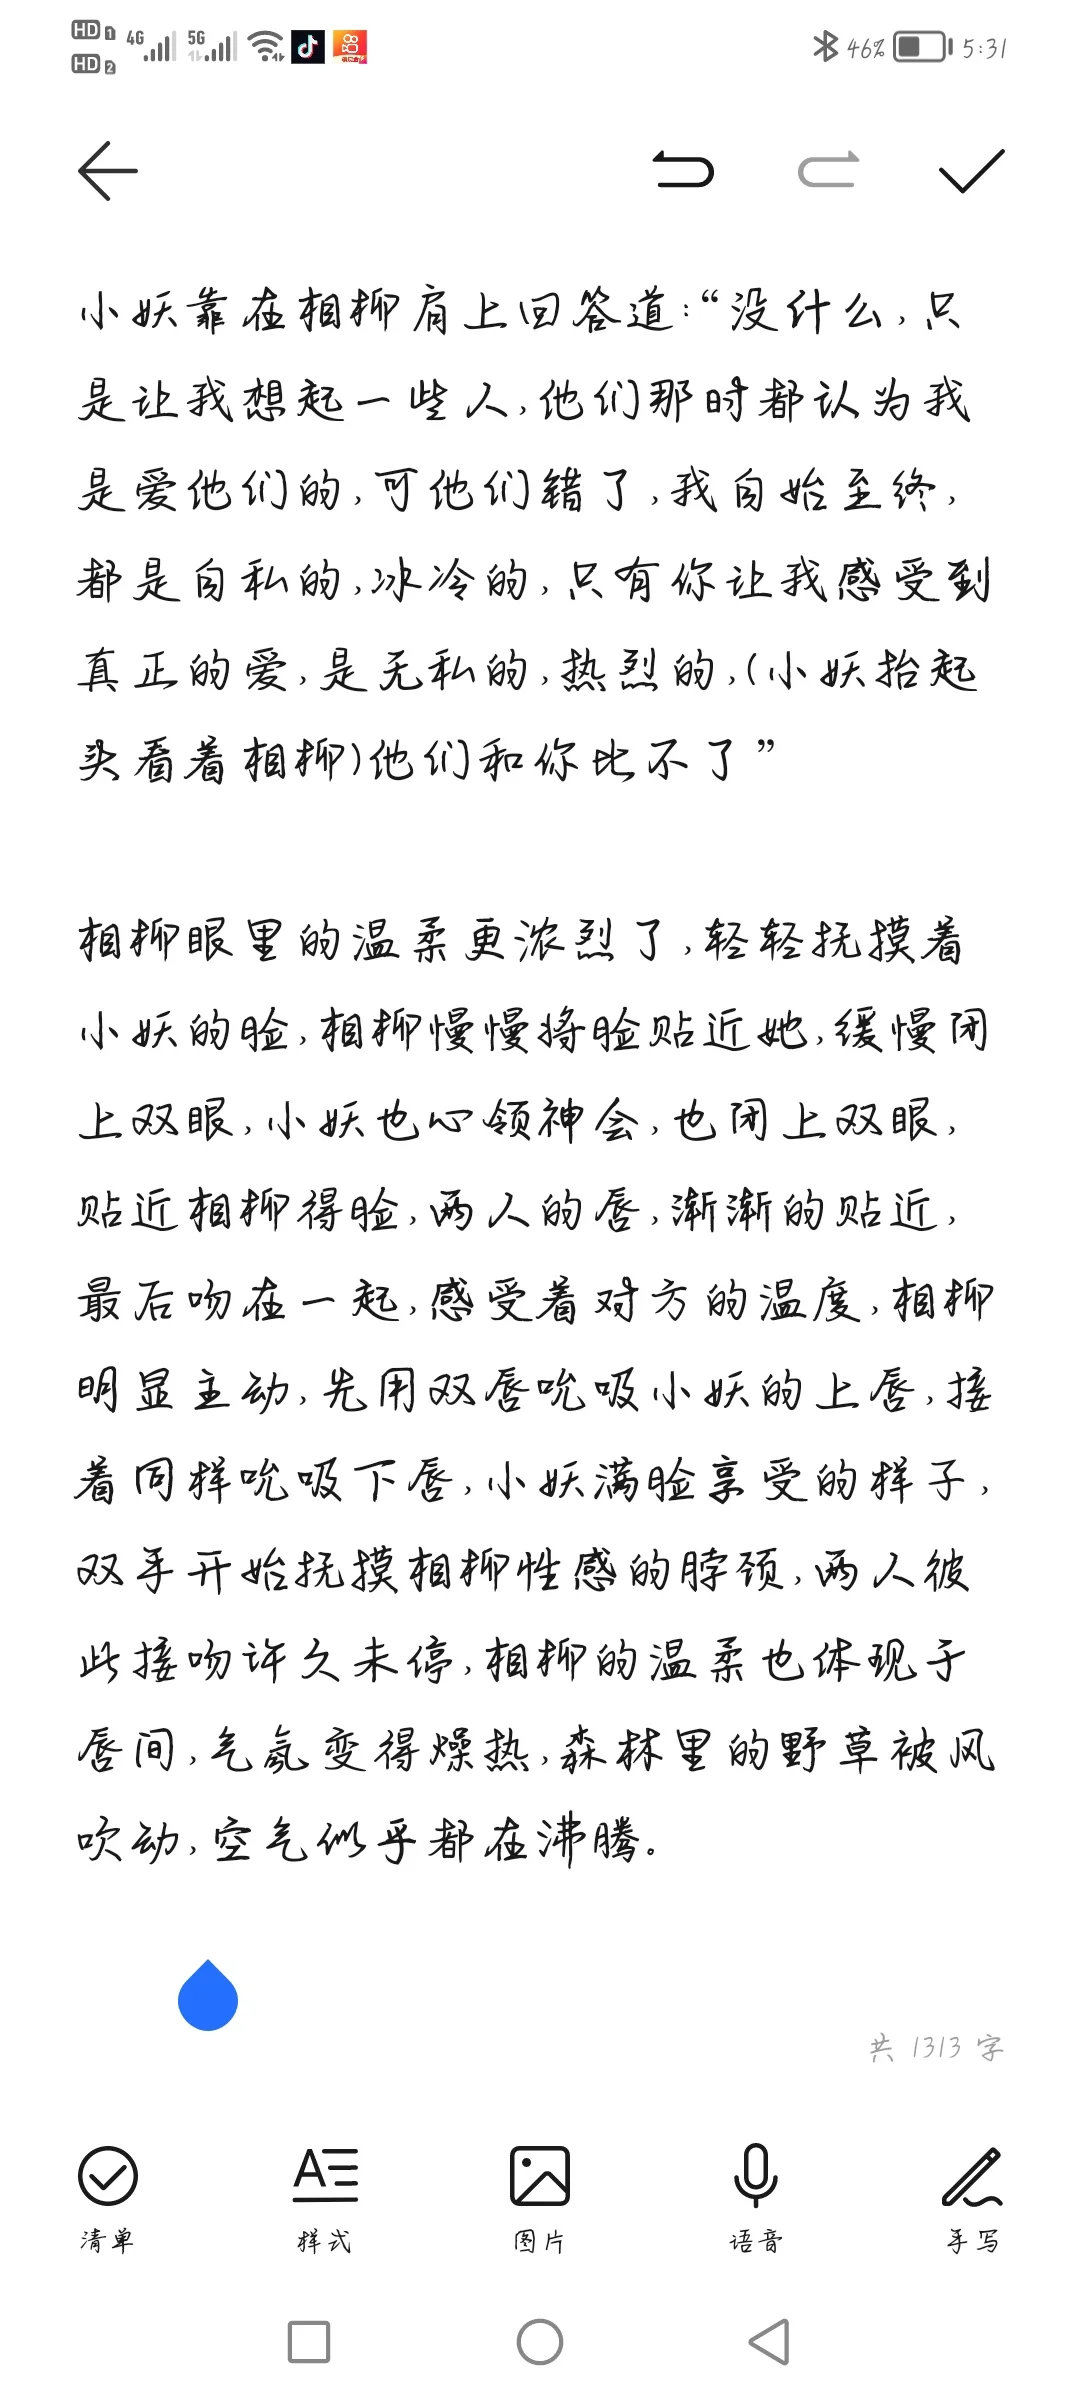 HD 1 4G 5G 46% 5:31
HD 2
小妖靠在相柳肩上回答道:“没什么,只
是让我想起一些人,他们那时都认为我
是爱他们的,可他们错了,我自始至终,
都是自私的,冰冷的,只有你让我感受到
真正的爱,是无私的,热烈的,(小妖抬起
头看着相柳)他们和你比不了”
相柳眼里的温柔更浓烈了,轻轻抚摸着
小妖的脸,相柳慢慢将脸贴近她,缓慢闭
上双眼,小妖也心领神会,也闭上双眼,
贴近相柳得脸,两人的唇,渐渐的贴近,
最后吻在一起,感受着对方的温度,相柳
明显主动,先用双唇吮吸小妖的上唇,接
着同样吮吸下唇,小妖满脸享受的样子,
双手开始抚摸相柳性感的脖颈,两人彼
此接吻许久未停,相柳的温柔也体现于
唇间,气氛变得燥热,森林里的野草被风
吹动,空气似乎都在沸腾。
共 1313 字
清单 样式 图片 语音 手写